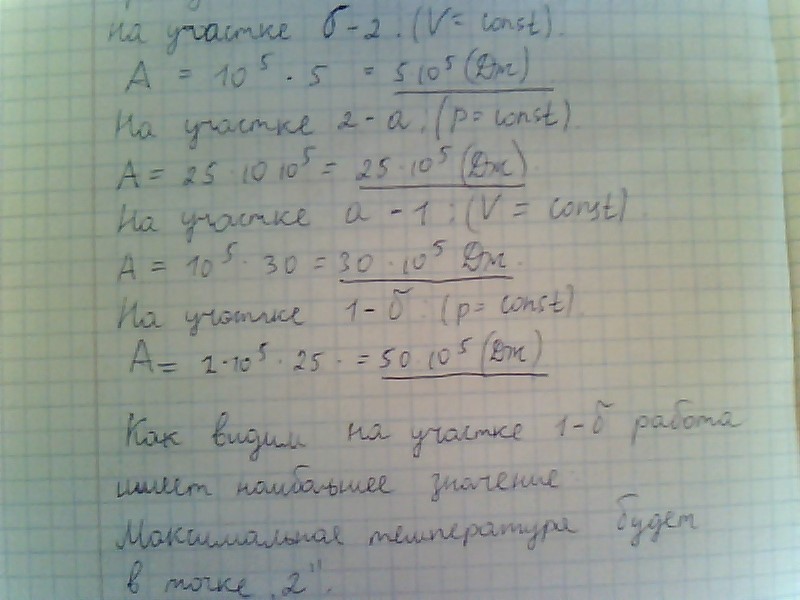 на участке б-2. (V = const).
A = 10⁵ · 5 = 5 10⁵ (Дж)
На участке 2-а: (p = const).
A = 25 · 10 10⁵ = 25 · 10⁵ (Дж)
На участке а - 1: (V = const)
A = 10⁵ · 30 = 30 · 10⁵ Дж.
На участке 1-б: (p = const)
A = 2·10⁵ · 25 · = 50 · 10⁵ (Дж)
Как видим на участке 1-б работа
имеет наибольшее значение
Максимальная температура будет
в точке „2".